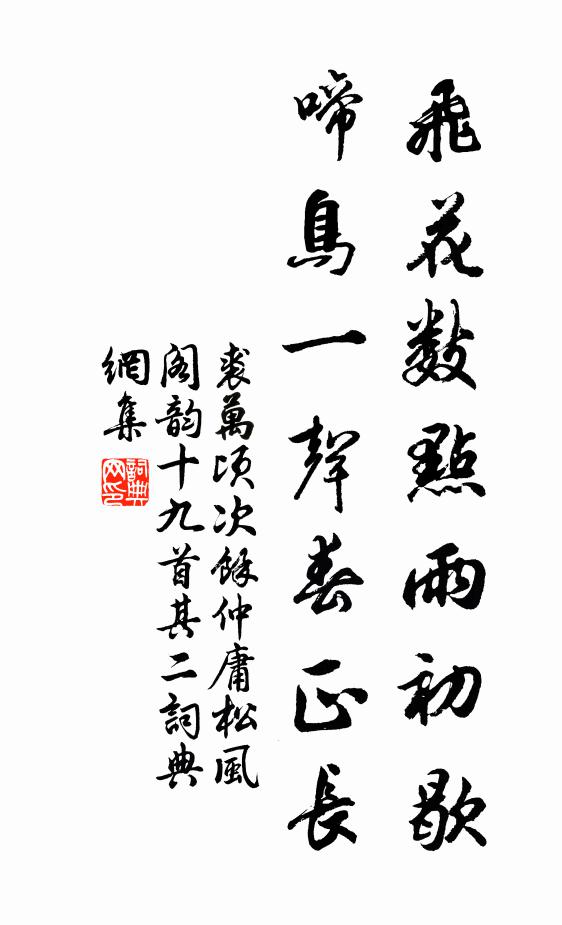 飛花數點雨初歇
啼鳥一聲春正長
裘萬頃次餘仲庸松風
閣韵十九首其二詞典
網集
詞典網印